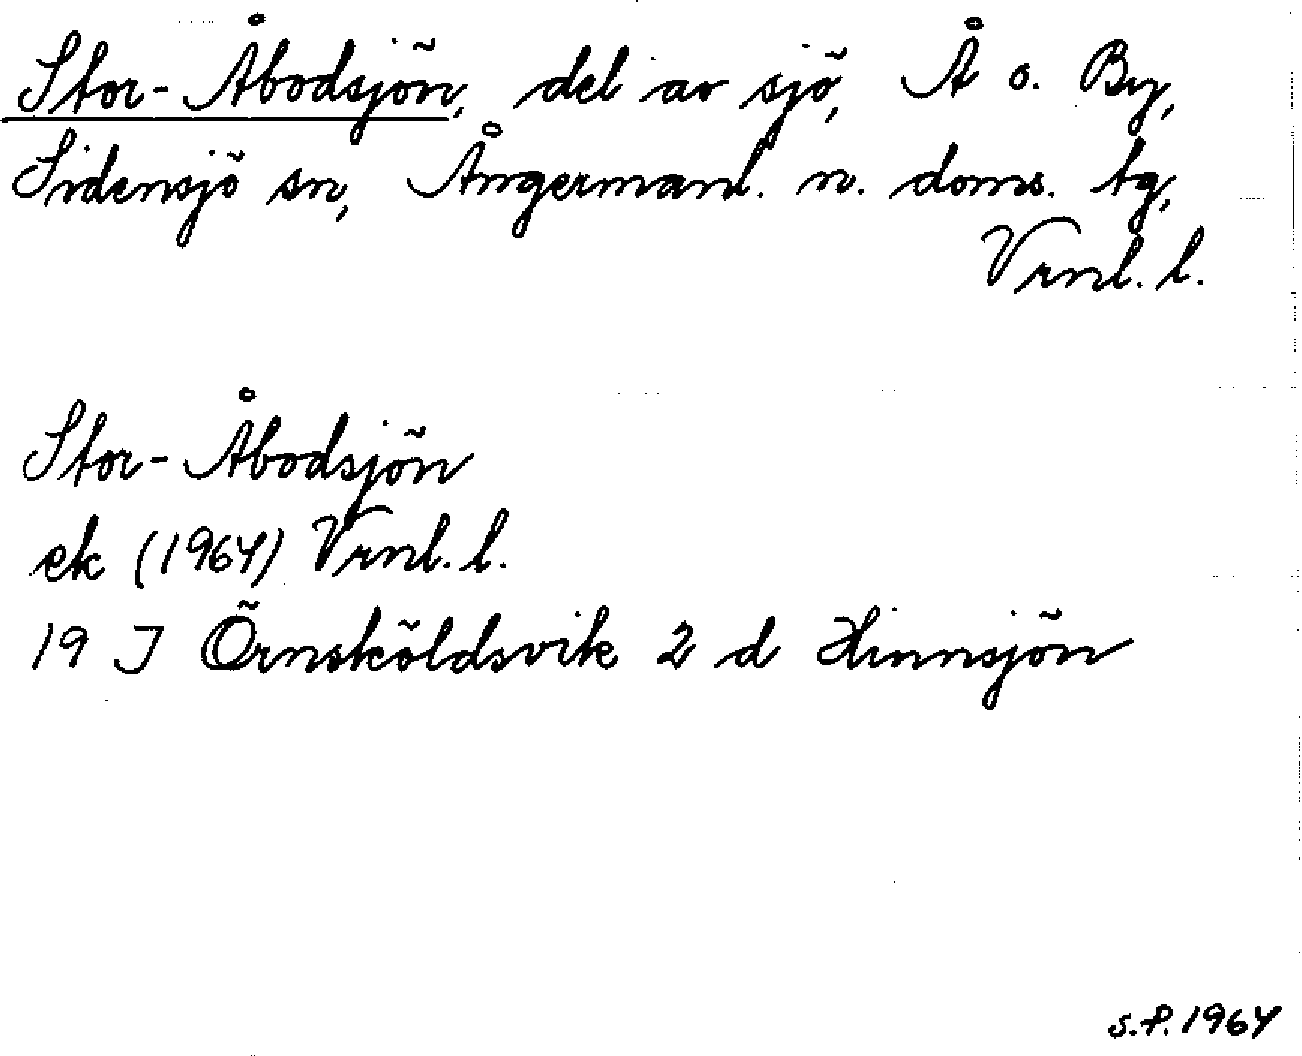 Stor-Åbodsjön, del av sjö, Å o. By,
Sidensjö sn, Ångermanl. n. doms. tg,
Vrnl. l.
Stor-Åbodsjön
ek (1964) Vrnl. l.
19 J Örnsköldsvik 2 d Hinnsjön
S.P. 1964